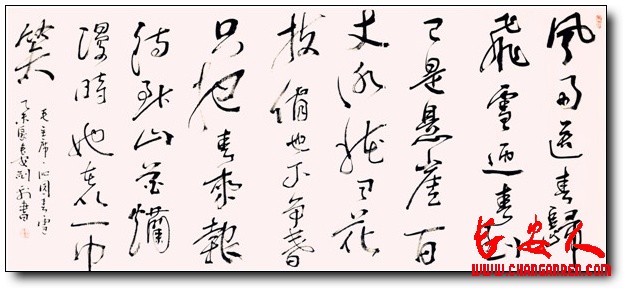 風雨送春歸
飛雪迎春到
已是懸崖百
丈冰猶有花
枝俏也不争春
只把春来報
待到山花爛
漫時她在丛中
笑
毛主席沁园春雪
长安人
WWW.CHANGANREN.COM